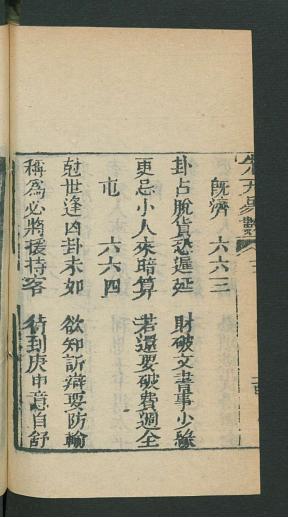 既濟 六六三
卦占脫貨恐遲延 財破文書事少緣
更忌小人來暗算 若還要破費週全
屯 六六四
尅世逢凶卦未如 欲知訴辯要防輸
稱為必將援持客 待到庚申意自舒